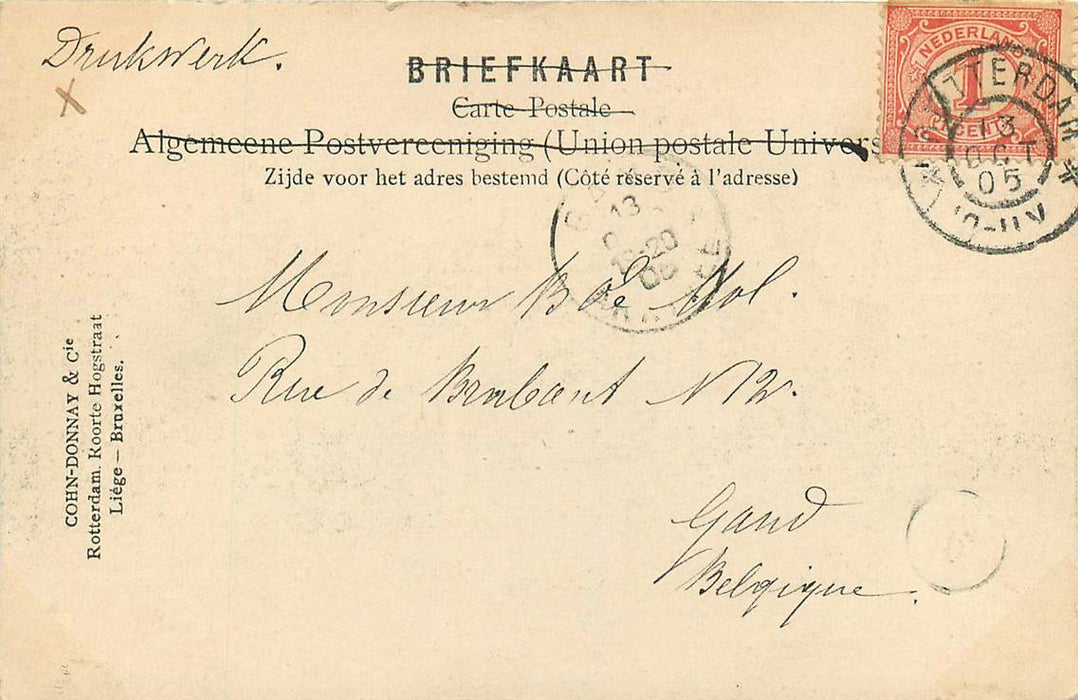 Drukwerk.
BRIEFKAART
Carte Postale
Algemeene Postvereeniging (Union postale Univers
Zijde voor het adres bestemd (Côté réservé à l'adresse)
NEDERLAND
1
CENT
ROTTERDAM
13
OCT
05
13
20
05
Monsieur B de Mol.
Rue de Brabant N 12.
Gand
Belgique.
COHN-DONNAY & Cie
Rotterdam. Roorte Hogstraat
Liége — Bruxelles.